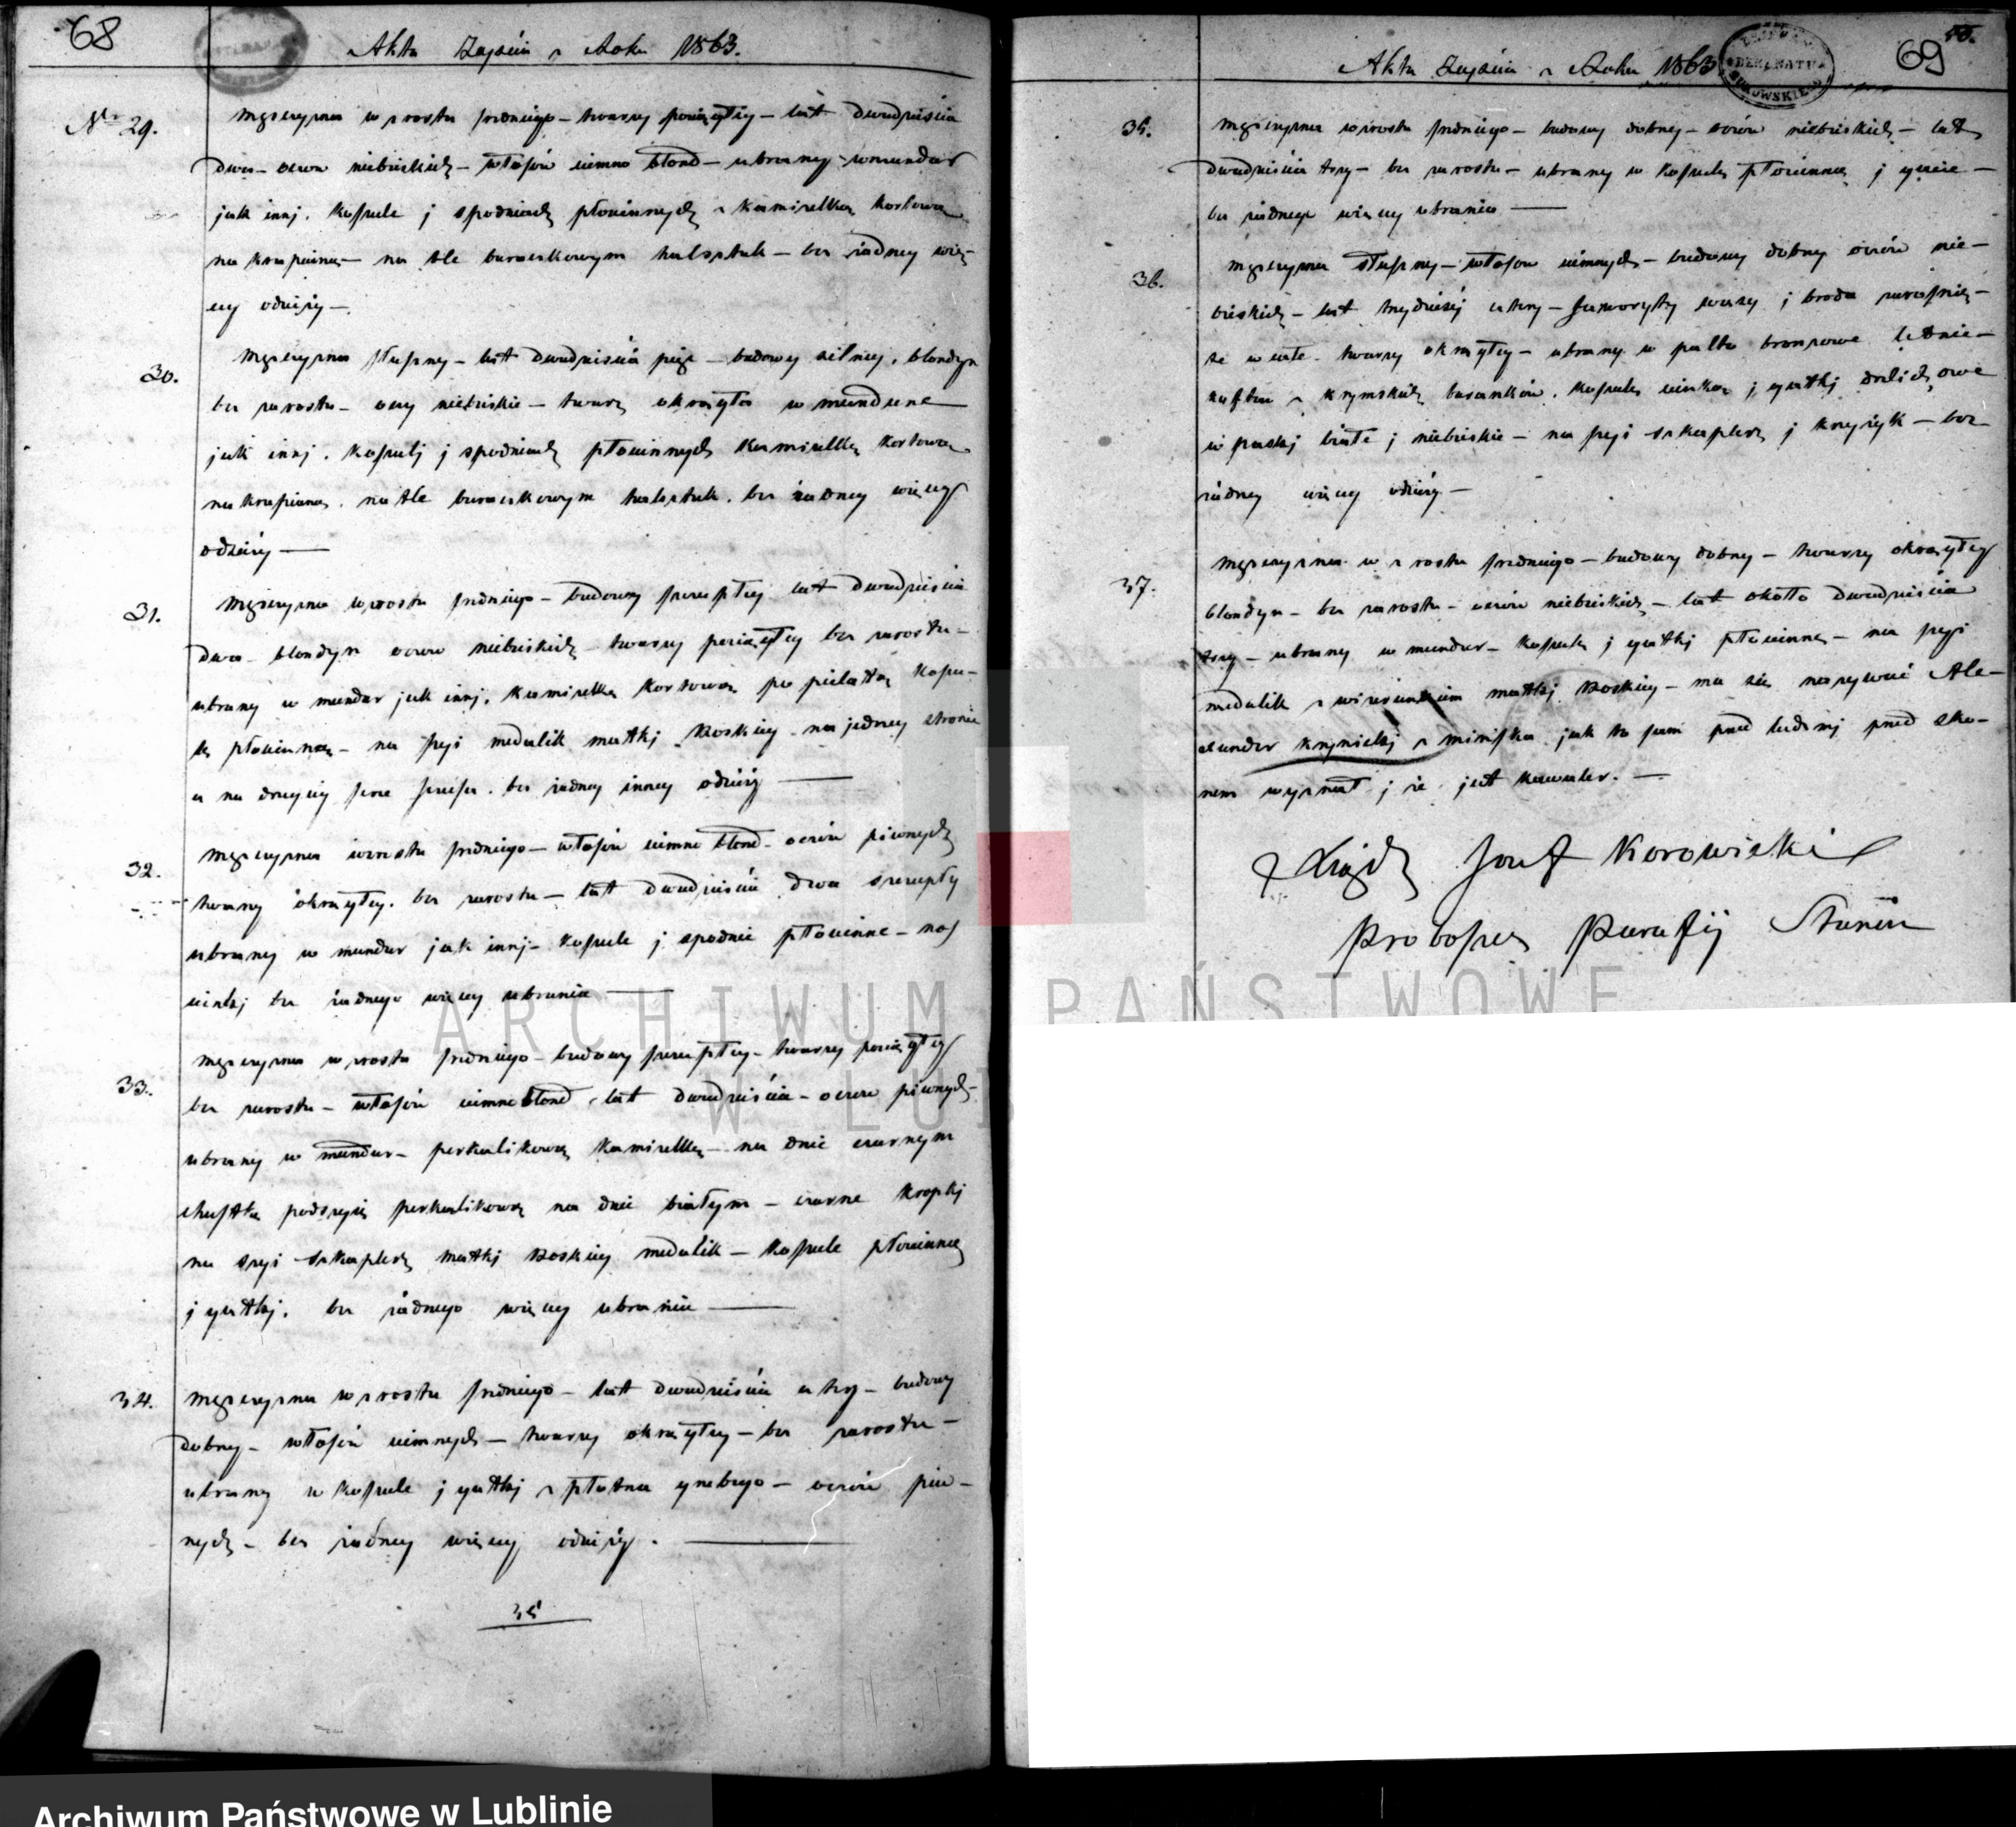 68
Akta Zajścia z Roku 1863.
Nr 29.
Mężczyzna wzrostu średniego – twarzy pociągłey – lat dwadzieścia
dwa – oczu niebieskich – włosów ciemno blond – ubrany w mundur
jak inni. Koszule j spodniach płóciennych z Kamizelką Kortową
na krapiana – na tle buraczkowym halsztuk – bez żadney więc-
cy odzieży –
30.
Mężczyzna słuszny – lat dwadzieścia pięć – budowy silney. blondyn
bez zarostu – oczy niebieskie – twarz okrągła w mundurze
jak inni. Koszulj j spodniach płóciennych Kamizelką Kortową
na krapiana. na tle buraczkowym halsztuk. bez żadney więcy
odzieży –
31.
Mężczyzna wzrostu średniego – budowy szczupłey lat dwadzieścia
dwa – blondyn oczu niebieskich – twarzy pociągłey bez zarostu –
ubrany w mundur jak inni. Kamizelka Kortowa Koszu-
la płócienna – na szyi medalik matkj Boskiey na jedney stronie
a na drugiey bez żadney inney odzieży –
32.
Mężczyzna wzrostu średniego – włosów ciemno blond – oczów piwnych
twarzy okrągłey. bez zarostu – lat dwadzieścia dwa szczupły
ubrany w mundur jak inni – Koszule j spodnie płócienne –
bez żadnego więcy ubrania –
33.
Mężczyzna wzrostu średniego – budowy szczupłey – twarzy pociągłey
bez zarostu – włosów ciemno blond – lat dwadzieścia – oczu piwnych –
ubrany w mundur – perkalikową Kamizelkę – na dnie czarnym
chustka podszyią perkalikową na dnie białym – czarne kropkj
na szyi szkaplerz matkj Boskiey medalik – Koszule płócienne
j gatkj. bez żadnego więcy ubrania –
34.
Mężczyzna wzrostu średniego – lat dwadzieścia cztery – budowy
dobrey – włosów ciemnych – twarzy okrągłey – bez zarostu –
ubrany w Koszule j gatkj z płótna grubego – oczów piw-
nych – bez żadney więcy odzieży. –
35
69
Akta Zajścia z Roku 1863
35.
Mężczyzna wzrostu średniego – budowy dobrey – oczów niebieskich – lat
dwadzieścia trzy – bez zarostu – ubrany w Koszulę płócienną j gacie –
bez żadnego więcy ubrania –
36.
Mężczyzna słuszny – włosów ciemnych – budowy dobrey oczów nie-
bieskich – lat trzydzieści cztery – faworyty wąsy j broda
twarzy okrągłey – ubrany w palto bronzowe letnie –
z krymskich baranków. Koszula cienka j gatkj drelichowe
w paskj białe j niebieskie – na szyi szkaplerz j krzyżyk – bez
żadney więcy odzieży –
37.
Mężczyzna wzrostu średniego – budowy dobrey – twarzy okrągłey
blondyn – bez zarostu – oczów niebieskich – lat około dwadzieścia
trzy – ubrany w mundur – Koszula j gatkj płócienne – na szyi
medalik z wizerunkiem matkj Boskiey – ma się nazywać Ale-
xander z jak to sam przed ludźmj przed sko-
nem wyznał j że jest kawaler. –
Xiądz Józef Korowiski
Proboszcz Parafij Stanin
ARCHIWUM PAŃSTWOWE
W LU
Archiwum Państwowe w Lublinie